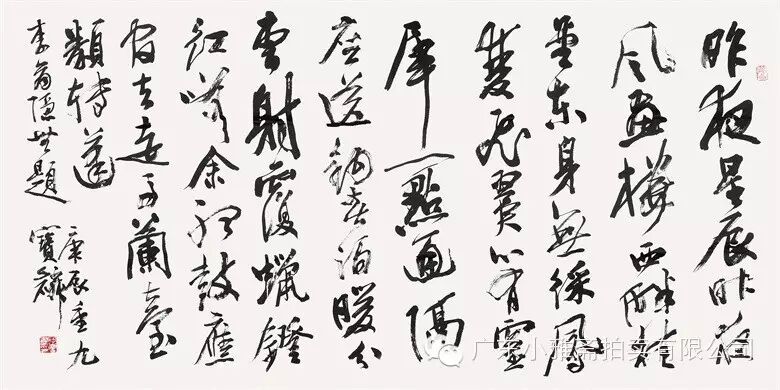 昨夜星辰昨夜
風畫樓西畔桂
堂東身無綵鳳
雙飛翼心有靈
犀一點通隔
座送鉤春酒暖分
曹射覆蠟鐙
紅嗟余聽鼓應
官去走馬蘭臺
類轉蓬
李商隱無題
庚辰重九
寶
广东小雅斋拍卖有限公司